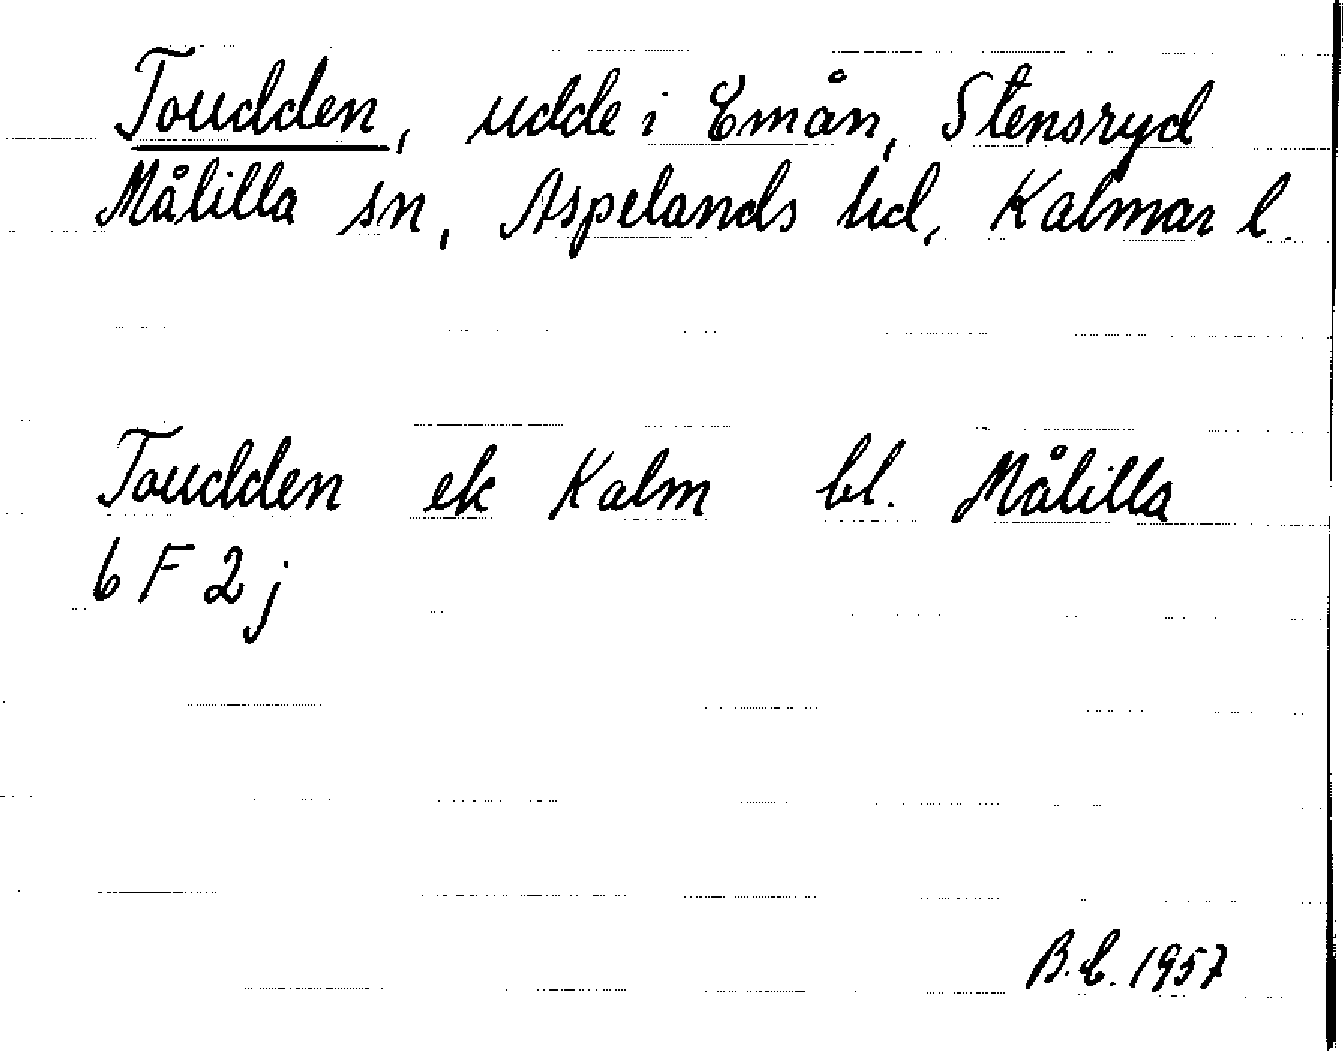 Toudden, udde i Emån, Stensryd
Målilla sn, Aspelands hd, Kalmar l.
Toudden ek Kalm bl. Målilla
6 F 2 j
1957